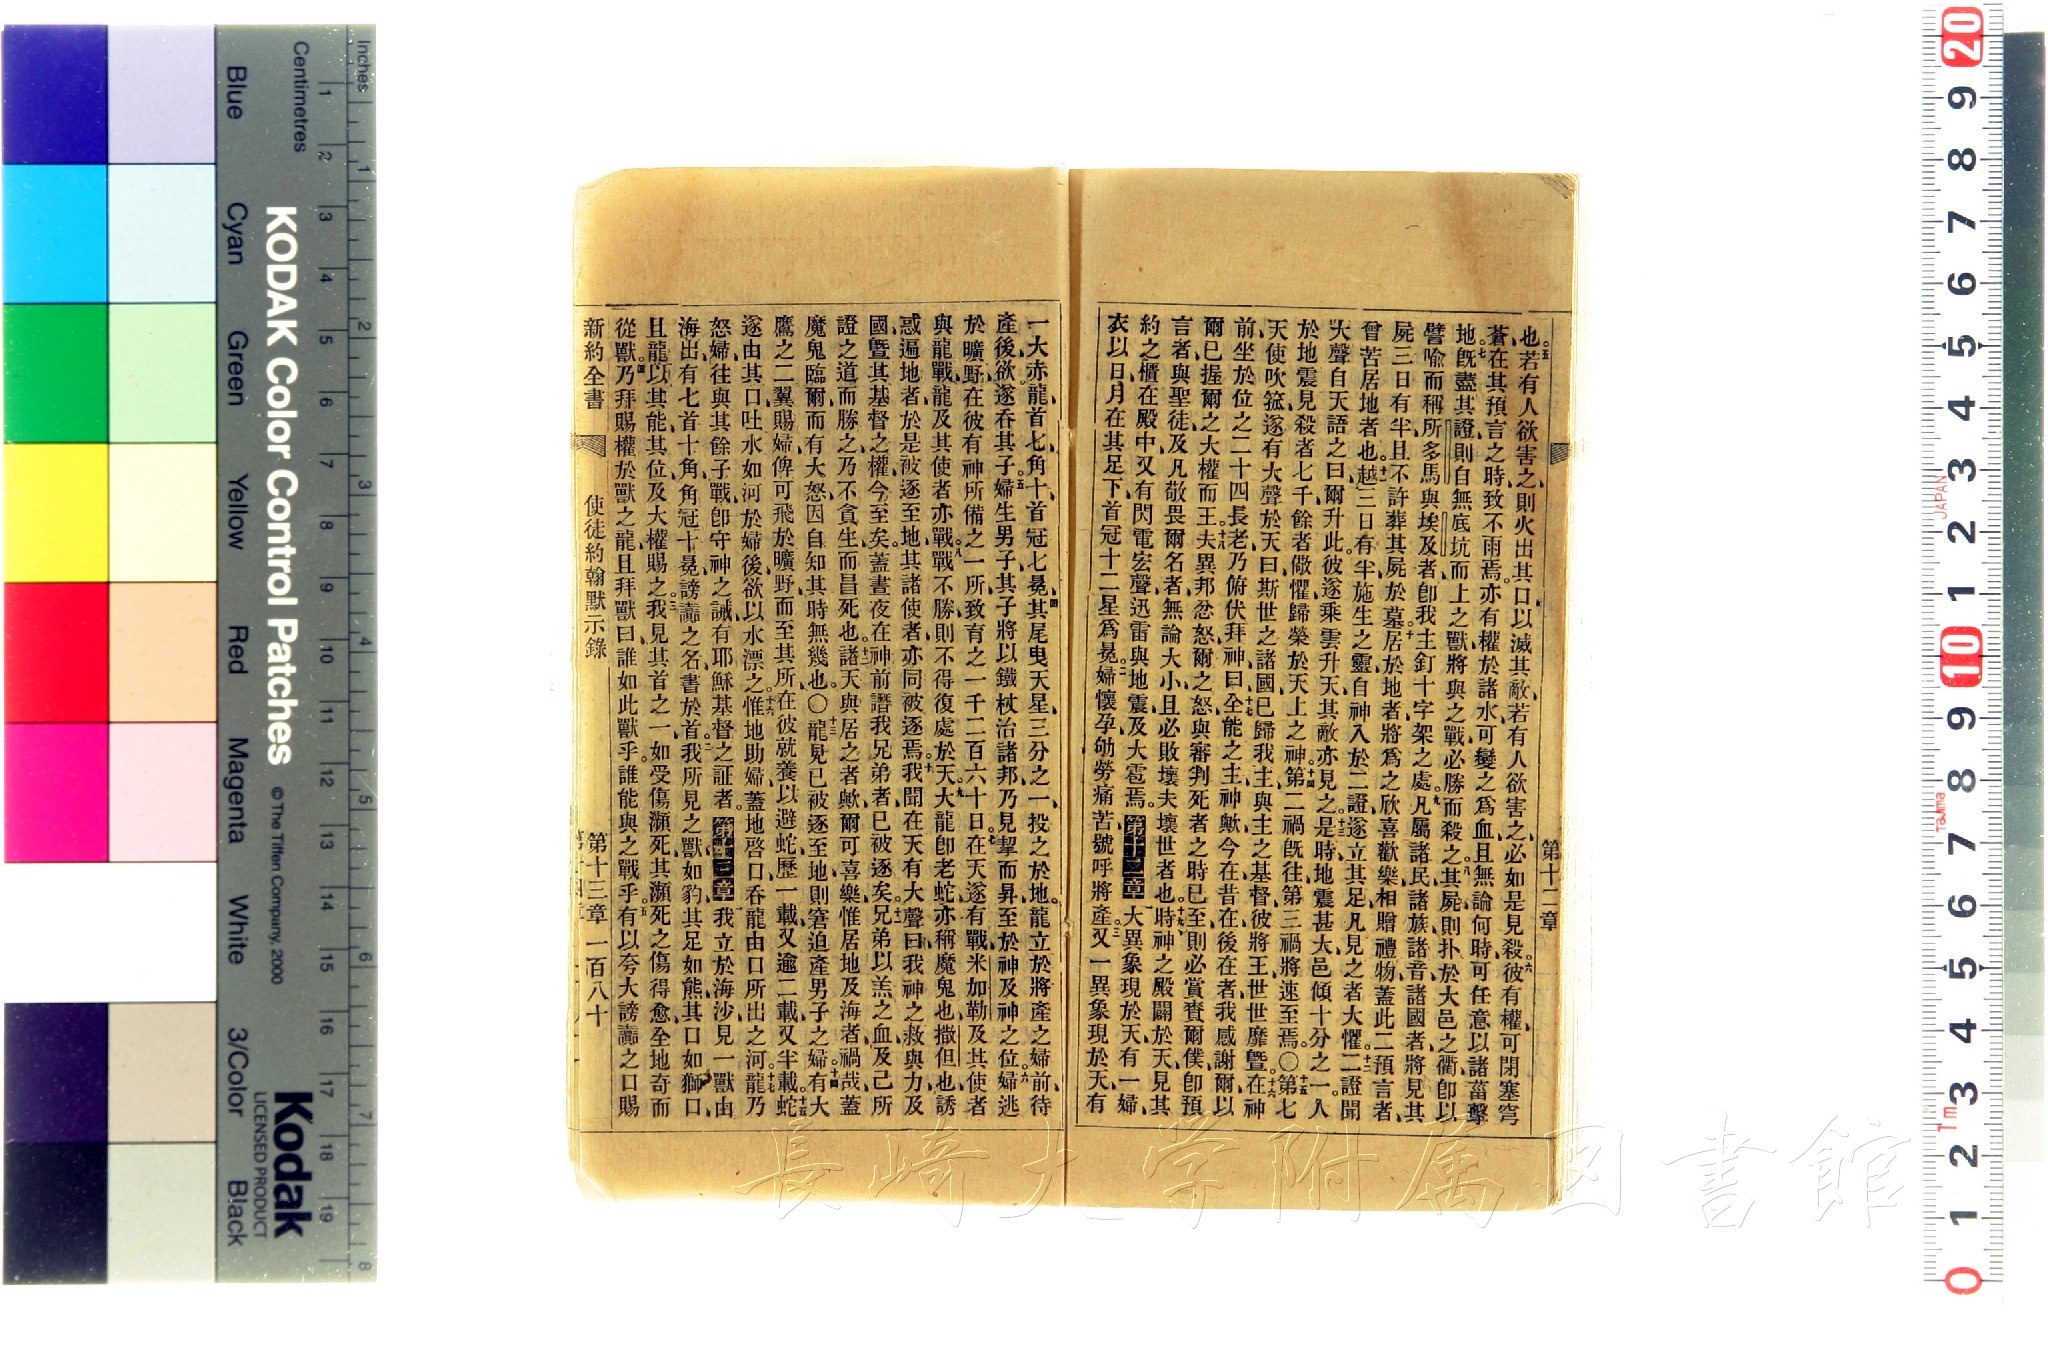 也五若有人欲害之則火出其口以滅其敵若有人欲害之必如是見殺六彼有權可閉塞穹
蒼在其預言之時致不雨焉亦有權於諸水可變之爲血且無論何時可任意以諸菑擊
地七旣盡其證則自無底坑而上之獸將與之戰必勝而殺之八其屍則扑於大邑之衢卽以
譬喩而稱所多馬與埃及者卽我主釘十字架之處九凡屬諸民諸族諸音諸國者將見其
屍三日有半且不許葬其屍於墓十居於地者將爲之欣喜歡樂相贈禮物蓋此二預言者
曾苦居地者也十一越三日有半施生之靈自神入於二證遂立其足凡見之者大懼十二二證聞
大聲自天語之曰爾升此彼遂乘雲升天其敵亦見之十三是時地震甚大邑傾十分之一人
於地震見殺者七千餘者儆懼歸榮於天上之神十四第二禍旣往第三禍將速至焉〇十五第七
天使吹箛遂有大聲於天曰斯世之諸國已歸我主與主之基督彼將王世世靡曁十六在神
前坐於位之二十四長老乃俯伏拜神曰十七全能之主神歟今在昔在後在者我感謝爾以
爾已握爾之大權而王十八夫異邦忿怒爾之怒與審判死者之時已至則必賞賚爾僕卽預
言者與聖徒及凡敬畏爾名者無論大小且必敗壞夫壞世者也十九時神之殿闢於天見其
約之櫃在殿中又有閃電宏聲迅雷與地震及大雹焉第十二章一大異象現於天有一婦
衣以日月在其足下首冠十二星爲冕二婦懷孕劬勞痛苦號呼將產三又一異象現於天有
第十二章
一大赤龍首七角十首冠七冕四其尾曳天星三分之一投之於地龍立於將產之婦前待
產後欲遂吞其子五婦生男子其子將以鐵杖治諸邦乃見挈而昇至於神及神之位六婦逃
於曠野在彼有神所備之一所致育之一千二百六十日七在天遂有戰米加勒及其使者
與龍戰龍及其使者亦戰八戰不勝則不得復處於天九大龍卽老蛇亦稱魔鬼也撒但也誘
惑遍地者於是被逐至地其諸使者亦同被逐焉十我聞在天有大聲曰我神之救與力及
國曁其基督之權今至矣蓋晝夜在神前譖我兄弟者已被逐矣十一兄弟以羔之血及己所
證之道而勝之乃不貪生而昌死也十二諸天與居之者歟爾可喜樂惟居地及海者禍哉蓋
魔鬼臨爾而有大怒因自知其時無幾也〇十三龍見已被逐至地則窘迫產男子之婦十四有大
鷹之二翼賜婦俾可飛於曠野而至其所在彼就養以避蛇歷一載又逾二載又半載十五蛇
遂由其口吐水如河於婦後欲以水漂之十六惟地助婦蓋地啓口吞龍由口所出之河十七龍乃
怒婦往與其餘子戰卽守神之誡有耶穌基督之証者第十三章一我立於海沙見一獸由
海出有七首十角角冠十冕謗讟之名書於首二我所見之獸如豹其足如熊其口如獅口
且龍以其能其位及大權賜之三我見其首之一如受傷瀕死其瀕死之傷得愈全地奇而
從獸四乃拜賜權於獸之龍且拜獸曰誰如此獸乎誰能與之戰乎五有以夸大謗讟之口賜
新約全書　使徒約翰默示錄　第十三章　一百八十